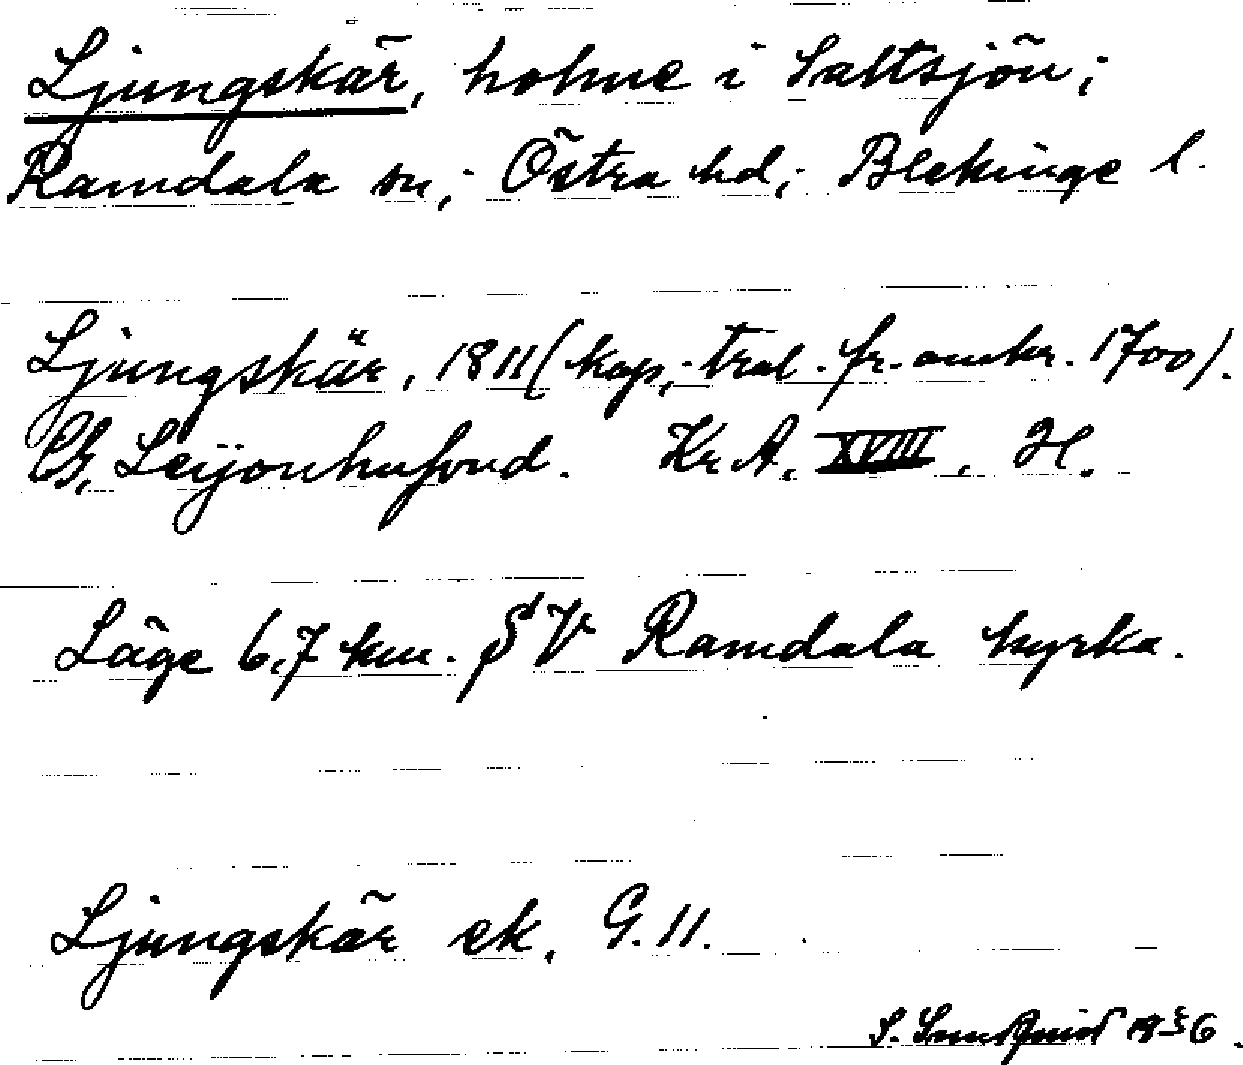 Ljungskär, holme i Saltsjön;
Ramdala sn; Östra hd; Blekinge l.
Ljungskär, 1811 (kop; tral. fr. omkr. 1700).
G, Leijonhufvud. Kr A. XVIII, H.
Läge 6,7 km. SV Ramdala kyrka.
Ljungskär ek. G. 11.
S. 1936.